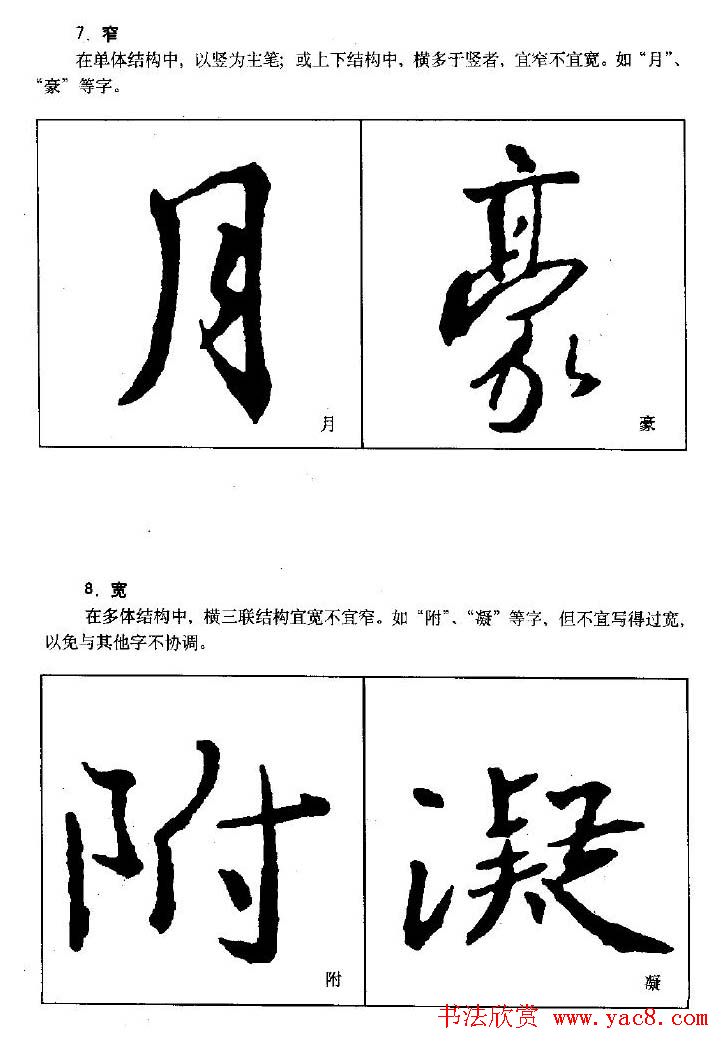 7. 窄
在单体结构中，以竖为主笔；或上下结构中，横多于竖者，宜窄不宜宽。如“月”、
“豪”等字。
月 豪
月 豪
8. 宽
在多体结构中，横三联结构宜宽不宜窄。如“附”、“凝”等字，但不宜写得过宽，
以免与其他字不协调。
附 凝
附 凝
书法欣赏 www.yac8.com